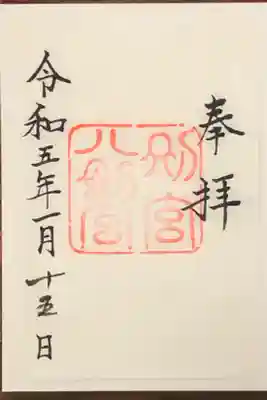 奉拝
別宮
八幡宮
令和五年一月十五日